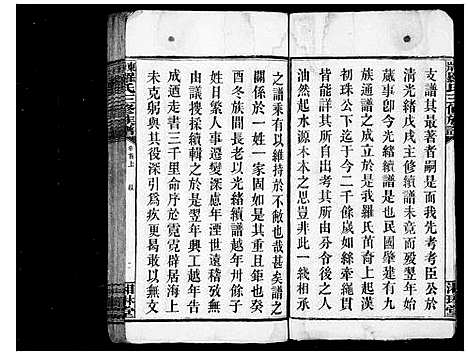 支譜其二者嗣是而我先考考臣公於
清光緒戊戌主修續譜未竟而歿翌年始
蕆事卽今光緒譜也民國肇建有九
族通譜之成立於是我羅氏苗裔上起漢
初珠公下迄於今二千餘歲如絲牽繩貫
皆能詳其所自出考其所由分令後之人
油然起水源木本之思豈非此一綫相承
之譜乘有以維持於不敝也哉甚矣譜之
關係於一姓一家固如是其重且鉅也癸
酉冬族間長老以光緒續譜越年卅餘子
姓日繁人事遷變深慮年湮世遠稽攷無
豉謀續輯之於是翌年興工越年告
成迺走書三千里命序於霓霓辟居海上
未克躬與其役深引爲疚更曷敢以無文
羅氏三修族譜
卷首上
叙